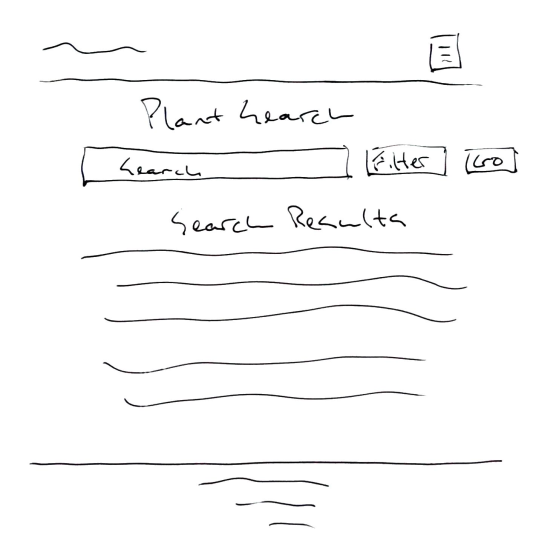 Plant Search
Search Filter GO
Search Results